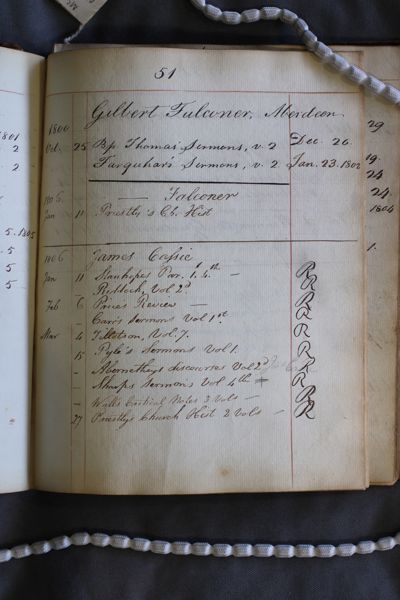 51
Gilbert Falconer, Aberdeen
1800
Oct. 25 Bp Thomas' Sermons, v. 2 Dec. 20
Farquhar's Sermons, v. 2 Jan. 23. 1802
— Falconer
1806
Jan 11 Priestly's Ch. Hist
1806 James Cassie
Jan 11 Stanhope's Par. 1. 4th — R
Riddoch, Vol 2d R
Feb 6 Price's Review — R
Carr's Sermons Vol 1st R
Mar 4 Tillotson, Vol. 7. R
15 Pyle's Sermons Vol 1. R
- Abernethy's discourses Vol 2d R
- Sharps Sermons Vol 4th R
- Wall's Critical Notes 2 vols — R
27 Priestly's Church Hist 2 vols — R
1801
2
2
5. 1805
5
5
5
29
19.
24
24
1804
1.